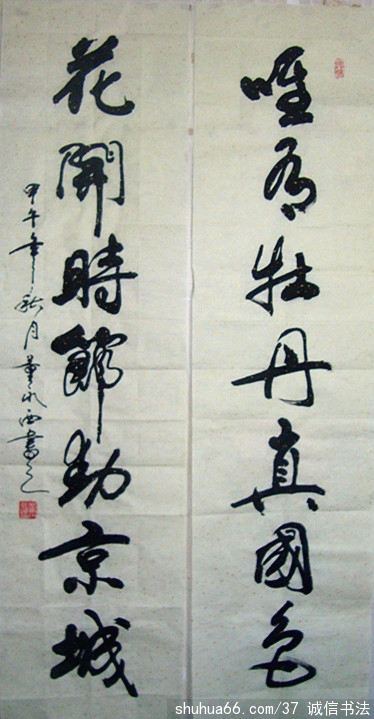 唯有牡丹真國色
花開時節動京城
甲午年秋月董永西書之
shuhua66.com/37 诚信书法